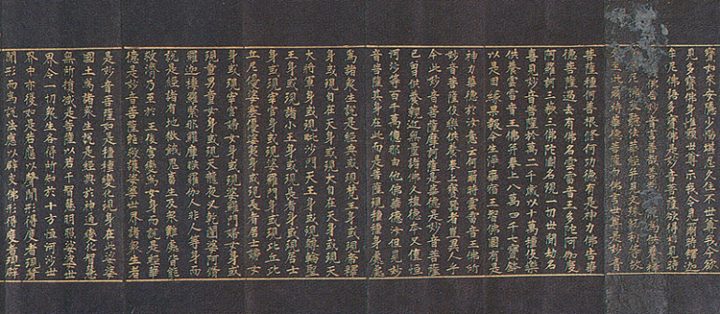 寶如來安隱少惱堪忍久住不世尊我今欲
見多寶佛身唯願世尊示我令見爾時釋迦
佛語多寶佛是妙音菩薩欲得相見時
佛告妙音言善哉善哉汝能為供養釋
尼佛及聽法華經并見文殊師利等故
菩薩白佛言世尊是妙音
菩薩種何善根修何功德有是神力佛告華
德菩薩過去有佛名雲雷音王多陀阿伽度
阿羅訶三藐三佛陀國名現一切世間劫名
喜見妙音菩薩於萬二千歲以十萬種伎樂
供養雲雷音王佛并奉上八萬四千七寶鉢
以是因緣果報今生淨華宿王智佛國有是
神力華德於汝意云何爾時雲雷音王佛所
妙音菩薩伎樂供養奉上寶器者豈異人乎
今此妙音菩薩摩訶薩是華德是妙音菩薩
已曾供養親近無量諸佛久殖德本又值恒
河沙等百千萬億那由他佛華德汝但見妙
音菩薩其身在此而是菩薩現種種身處處
為諸衆生說是經典或現梵王身或現帝釋
身或現自在天身或現大自在天身或現天
大將軍身或現毗沙門天王身或現轉輪聖
王身或現諸小王身或現長者身或現居士
身或現宰官身或現婆羅門身或現比丘比
丘尼優婆塞優婆夷身或現長者居士婦女
身或現宰官婦女身或現婆羅門婦女身或
現童男童女身或現天龍夜叉乾闥婆阿修
羅迦樓羅緊那羅摩睺羅伽人非人等身而
說是經諸有地獄餓鬼畜生及衆難處皆能
救濟乃至於王後宮變為女身而說是經華
德是妙音菩薩能救護娑婆世界諸衆生者
是妙音菩薩如是種種變化現身在此娑婆
國土為諸衆生說是經典於神通變化智慧
無所損減是菩薩以若干智慧明照娑婆世
界令一切衆生各得所知於十方恒河沙世
界中亦復如是若應以聲聞形得度者現聲
聞形而為說法應以辟支佛形得度者現辟